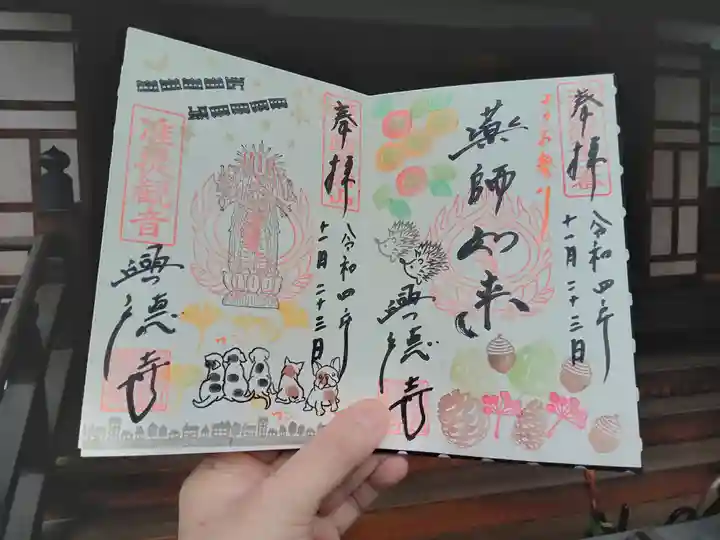 奉拝
令和四年
十一月二十三日
薬師如来
興徳寺
奉拝
令和四年
十一月二十三日
准胝観音
興徳寺
ワン